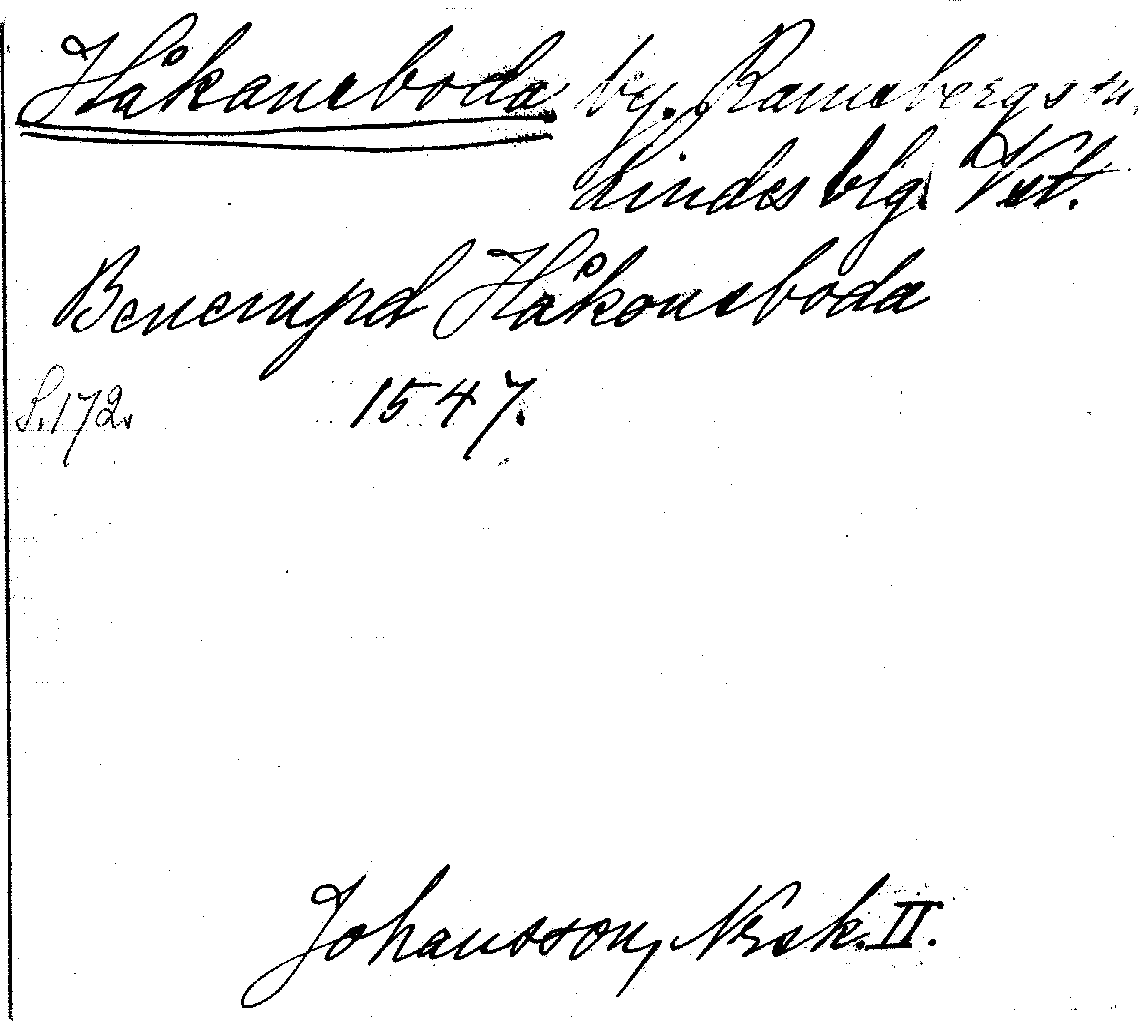 Håkansboda by. Ramsbergs sn.
Lindes blg. Vst.
Benempd Håkonsboda
S. 172. 1547.
Johansson, Nrsk. II.